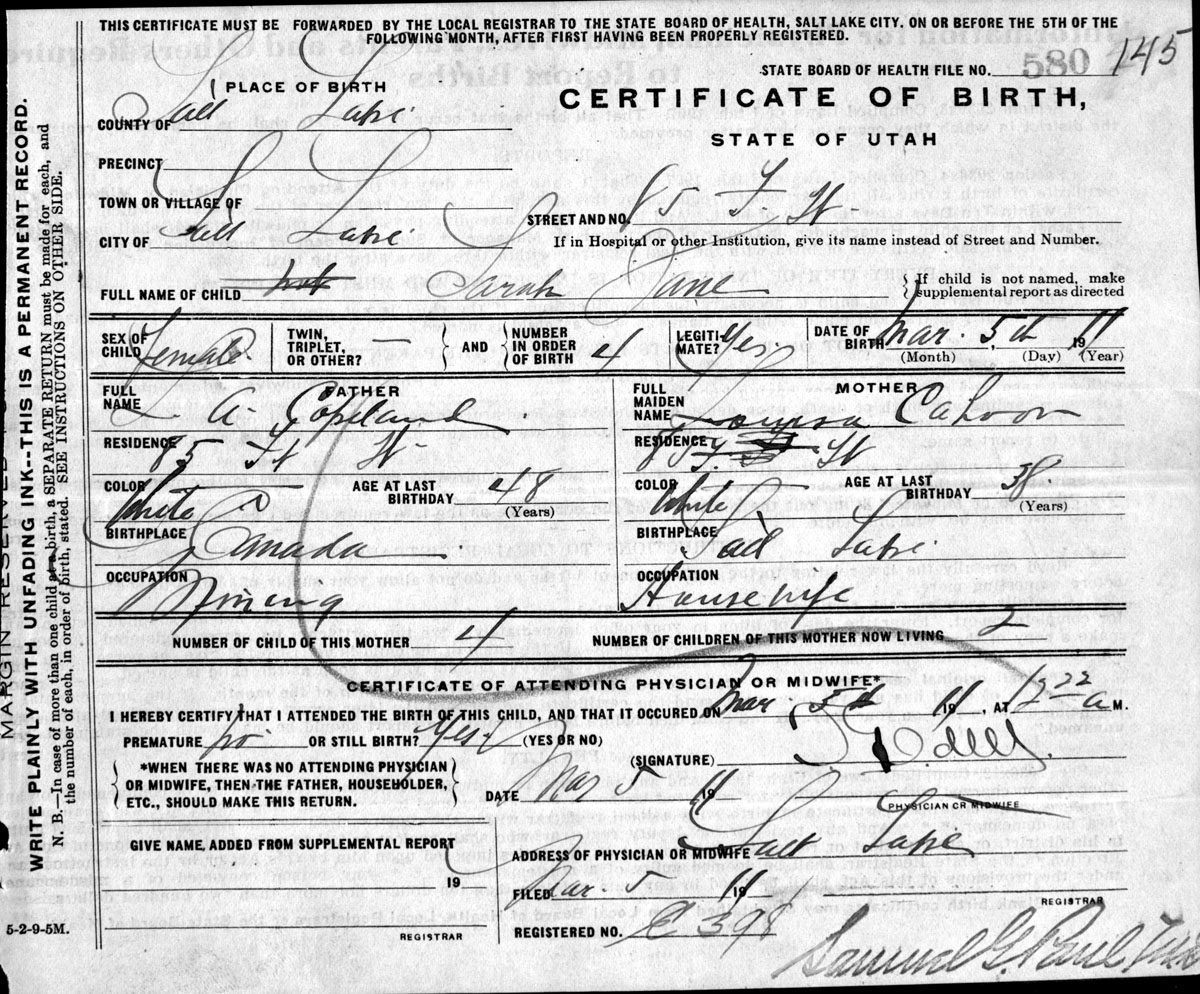 THIS CERTIFICATE MUST BE FORWARDED BY THE LOCAL REGISTRAR TO THE STATE BOARD OF HEALTH, SALT LAKE CITY, ON OR BEFORE THE 5TH OF THE
FOLLOWING MONTH, AFTER FIRST HAVING BEEN PROPERLY REGISTERED.
STATE BOARD OF HEALTH FILE NO. 580 145
PLACE OF BIRTH
CERTIFICATE OF BIRTH,
STATE OF UTAH
COUNTY OF Salt Lake
PRECINCT
TOWN OR VILLAGE OF
STREET AND NO. St
CITY OF Salt Lake
If in Hospital or other Institution, give its name instead of Street and Number.
FULL NAME OF CHILD not Sarah Jane
If child is not named, make supplemental report as directed
SEX OF CHILD Female
TWIN, TRIPLET, OR OTHER? —
AND
NUMBER IN ORDER OF BIRTH 4
LEGITIMATE? Yes
DATE OF BIRTH Mar. 5th 1911
(Month) (Day) (Year)
FATHER
FULL NAME A Copeland
RESIDENCE 85 St
COLOR White
AGE AT LAST BIRTHDAY 48
(Years)
BIRTHPLACE Canada
OCCUPATION Mining
MOTHER
FULL MAIDEN NAME Cahoon
RESIDENCE St
COLOR White
AGE AT LAST BIRTHDAY 38
(Years)
BIRTHPLACE Salt Lake
OCCUPATION Housewife
NUMBER OF CHILD OF THIS MOTHER 4
NUMBER OF CHILDREN OF THIS MOTHER NOW LIVING 2
CERTIFICATE OF ATTENDING PHYSICIAN OR MIDWIFE*
I HEREBY CERTIFY THAT I ATTENDED THE BIRTH OF THIS CHILD, AND THAT IT OCCURED ON Mar. 5th 1911, AT A M.
PREMATURE No OR STILL BIRTH? Yes (YES OR NO)
(SIGNATURE)
*WHEN THERE WAS NO ATTENDING PHYSICIAN
OR MIDWIFE, THEN THE FATHER, HOUSEHOLDER,
ETC., SHOULD MAKE THIS RETURN.
DATE Mar 5 1911
PHYSICIAN OR MIDWIFE
GIVE NAME, ADDED FROM SUPPLEMENTAL REPORT
19
REGISTRAR
ADDRESS OF PHYSICIAN OR MIDWIFE Salt Lake
FILED Mar 5 1911
REGISTRAR
REGISTERED NO. 398
Samuel G. Paul
5-2-9-5M.
MARGIN RESERVED
WRITE PLAINLY WITH UNFADING INK--THIS IS A PERMANENT RECORD.
N. B.—In case of more than one child at a birth, a SEPARATE RETURN must be made for each, and
the number of each, in order of birth, stated. SEE INSTRUCTIONS ON OTHER SIDE.